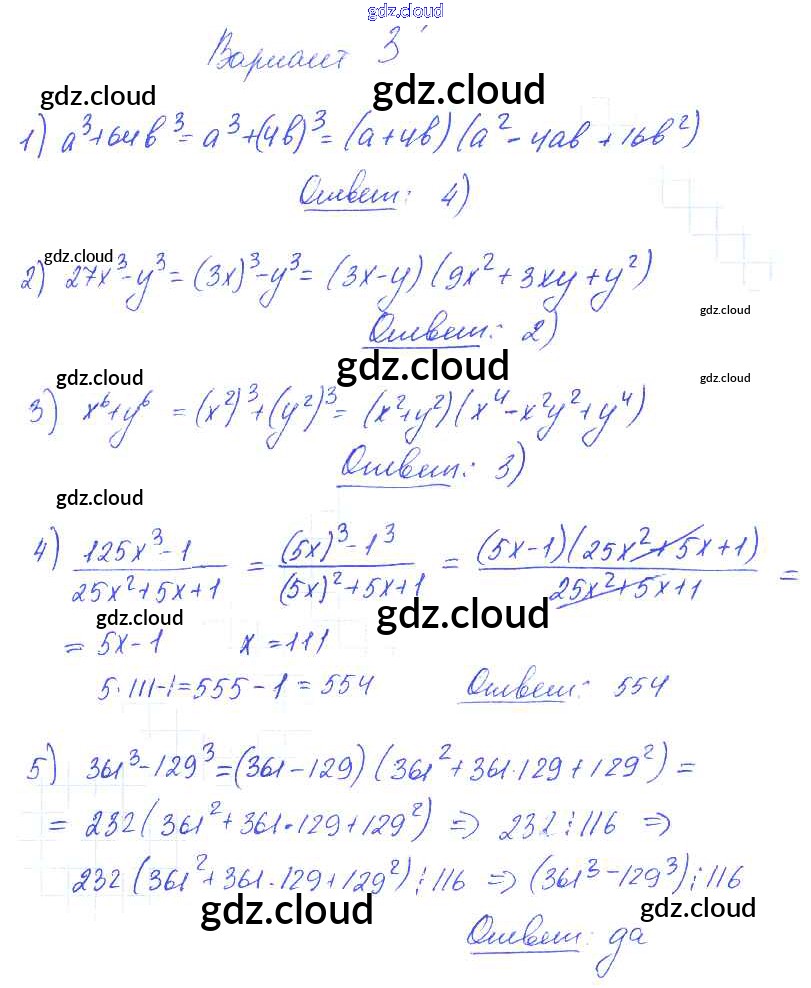 gdz.cloud
Вариант 3
gdz.cloud gdz.cloud
1) a³+64b³= a³+(4b)³= (a+4b)(a²-4ab+16b²)
Ответ: 4)
gdz.cloud
2) 27x³-y³= (3x)³-y³= (3x-y)(9x²+3xy+y²)
gdz.cloud
Ответ: 2)
gdz.cloud gdz.cloud gdz.cloud
3) x⁶+y⁶ = (x²)³+(y²)³= (x²+y²)(x⁴-x²y²+y⁴)
Ответ: 3)
gdz.cloud gdz.cloud
4) (125x³-1)/(25x²+5x+1) = ((5x)³-1³)/((5x)²+5x+1) = ((5x-1)(25x²+5x+1))/(25x²+5x+1) =
gdz.cloud gdz.cloud
= 5x-1 x=111
5·111-1=555-1=554 Ответ: 554
5) 361³-129³=(361-129)(361²+361·129+129²)=
= 232(361²+361·129+129²) ⇒ 232⋮116 ⇒
232(361²+361·129+129²)⋮116 ⇒ (361³-129³)⋮116
gdz.cloud gdz.cloud
Ответ: да